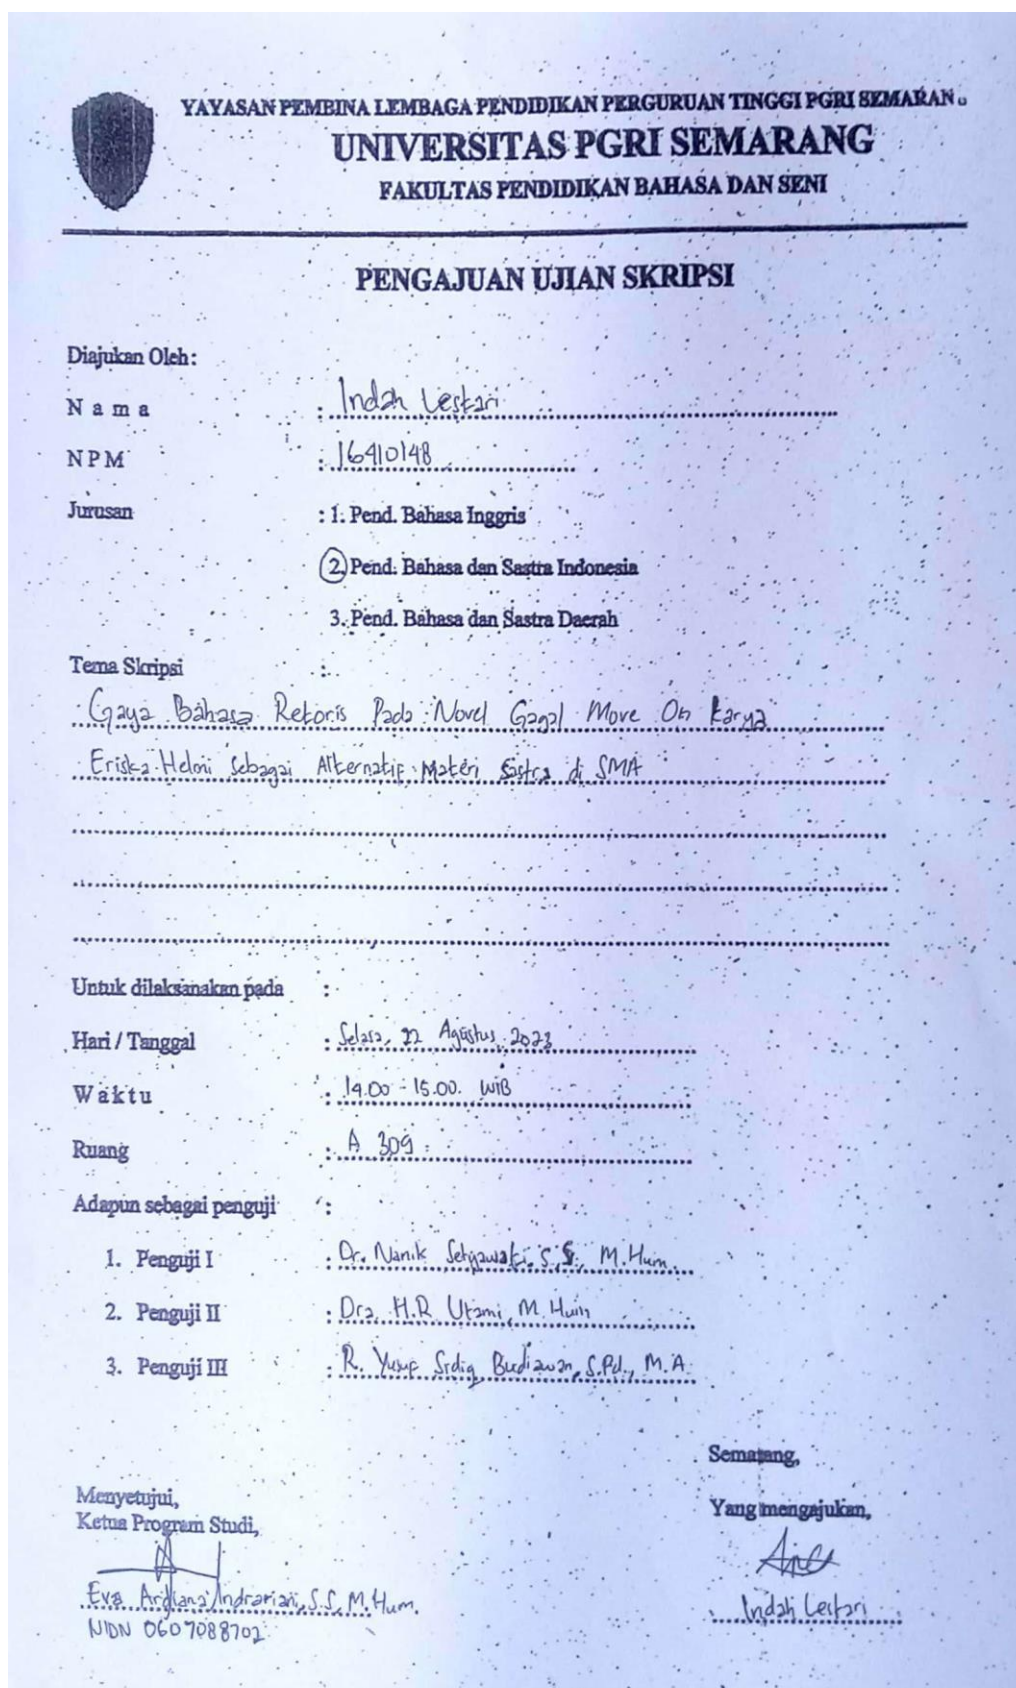 YAYASAN PEMBINA LEMBAGA PENDIDIKAN PERGURUAN TINGGI PGRI SEMARAN
UNIVERSITAS PGRI SEMARANG
FAKULTAS PENDIDIKAN BAHASA DAN SENI
PENGAJUAN UJIAN SKRIPSI
Diajukan Oleh:
N a m a : Indah Lestari
NPM : 16410148
Jurusan : 1. Pend. Bahasa Inggris
2. Pend. Bahasa dan Sastra Indonesia
3. Pend. Bahasa dan Sastra Daerah
Tema Skripsi :
Gaya Bahasa Retoris Pada Novel Gagal Move On Karya
Eriska Helmi Sebagai Alternatif Materi Sastra di SMA
Untuk dilaksanakan pada :
Hari / Tanggal : Selasa, 22 Agustus, 2023
W a k t u : 14.00 - 15.00. WIB
Ruang : A 309
Adapun sebagai penguji :
1. Penguji I : Dr. Nanik Setyawati, S.S., M.Hum.
2. Penguji II : Dra. H.R Utami, M.Hum
3. Penguji III : R. Yusuf Sidiq Budiawan, S.Pd., M.A.
Semarang,
Menyetujui,
Ketua Program Studi,
Yang mengajukan,
Eva Ardiana Indrariani, S.S, M.Hum.
NIDN 0607088702
Indah Lestari